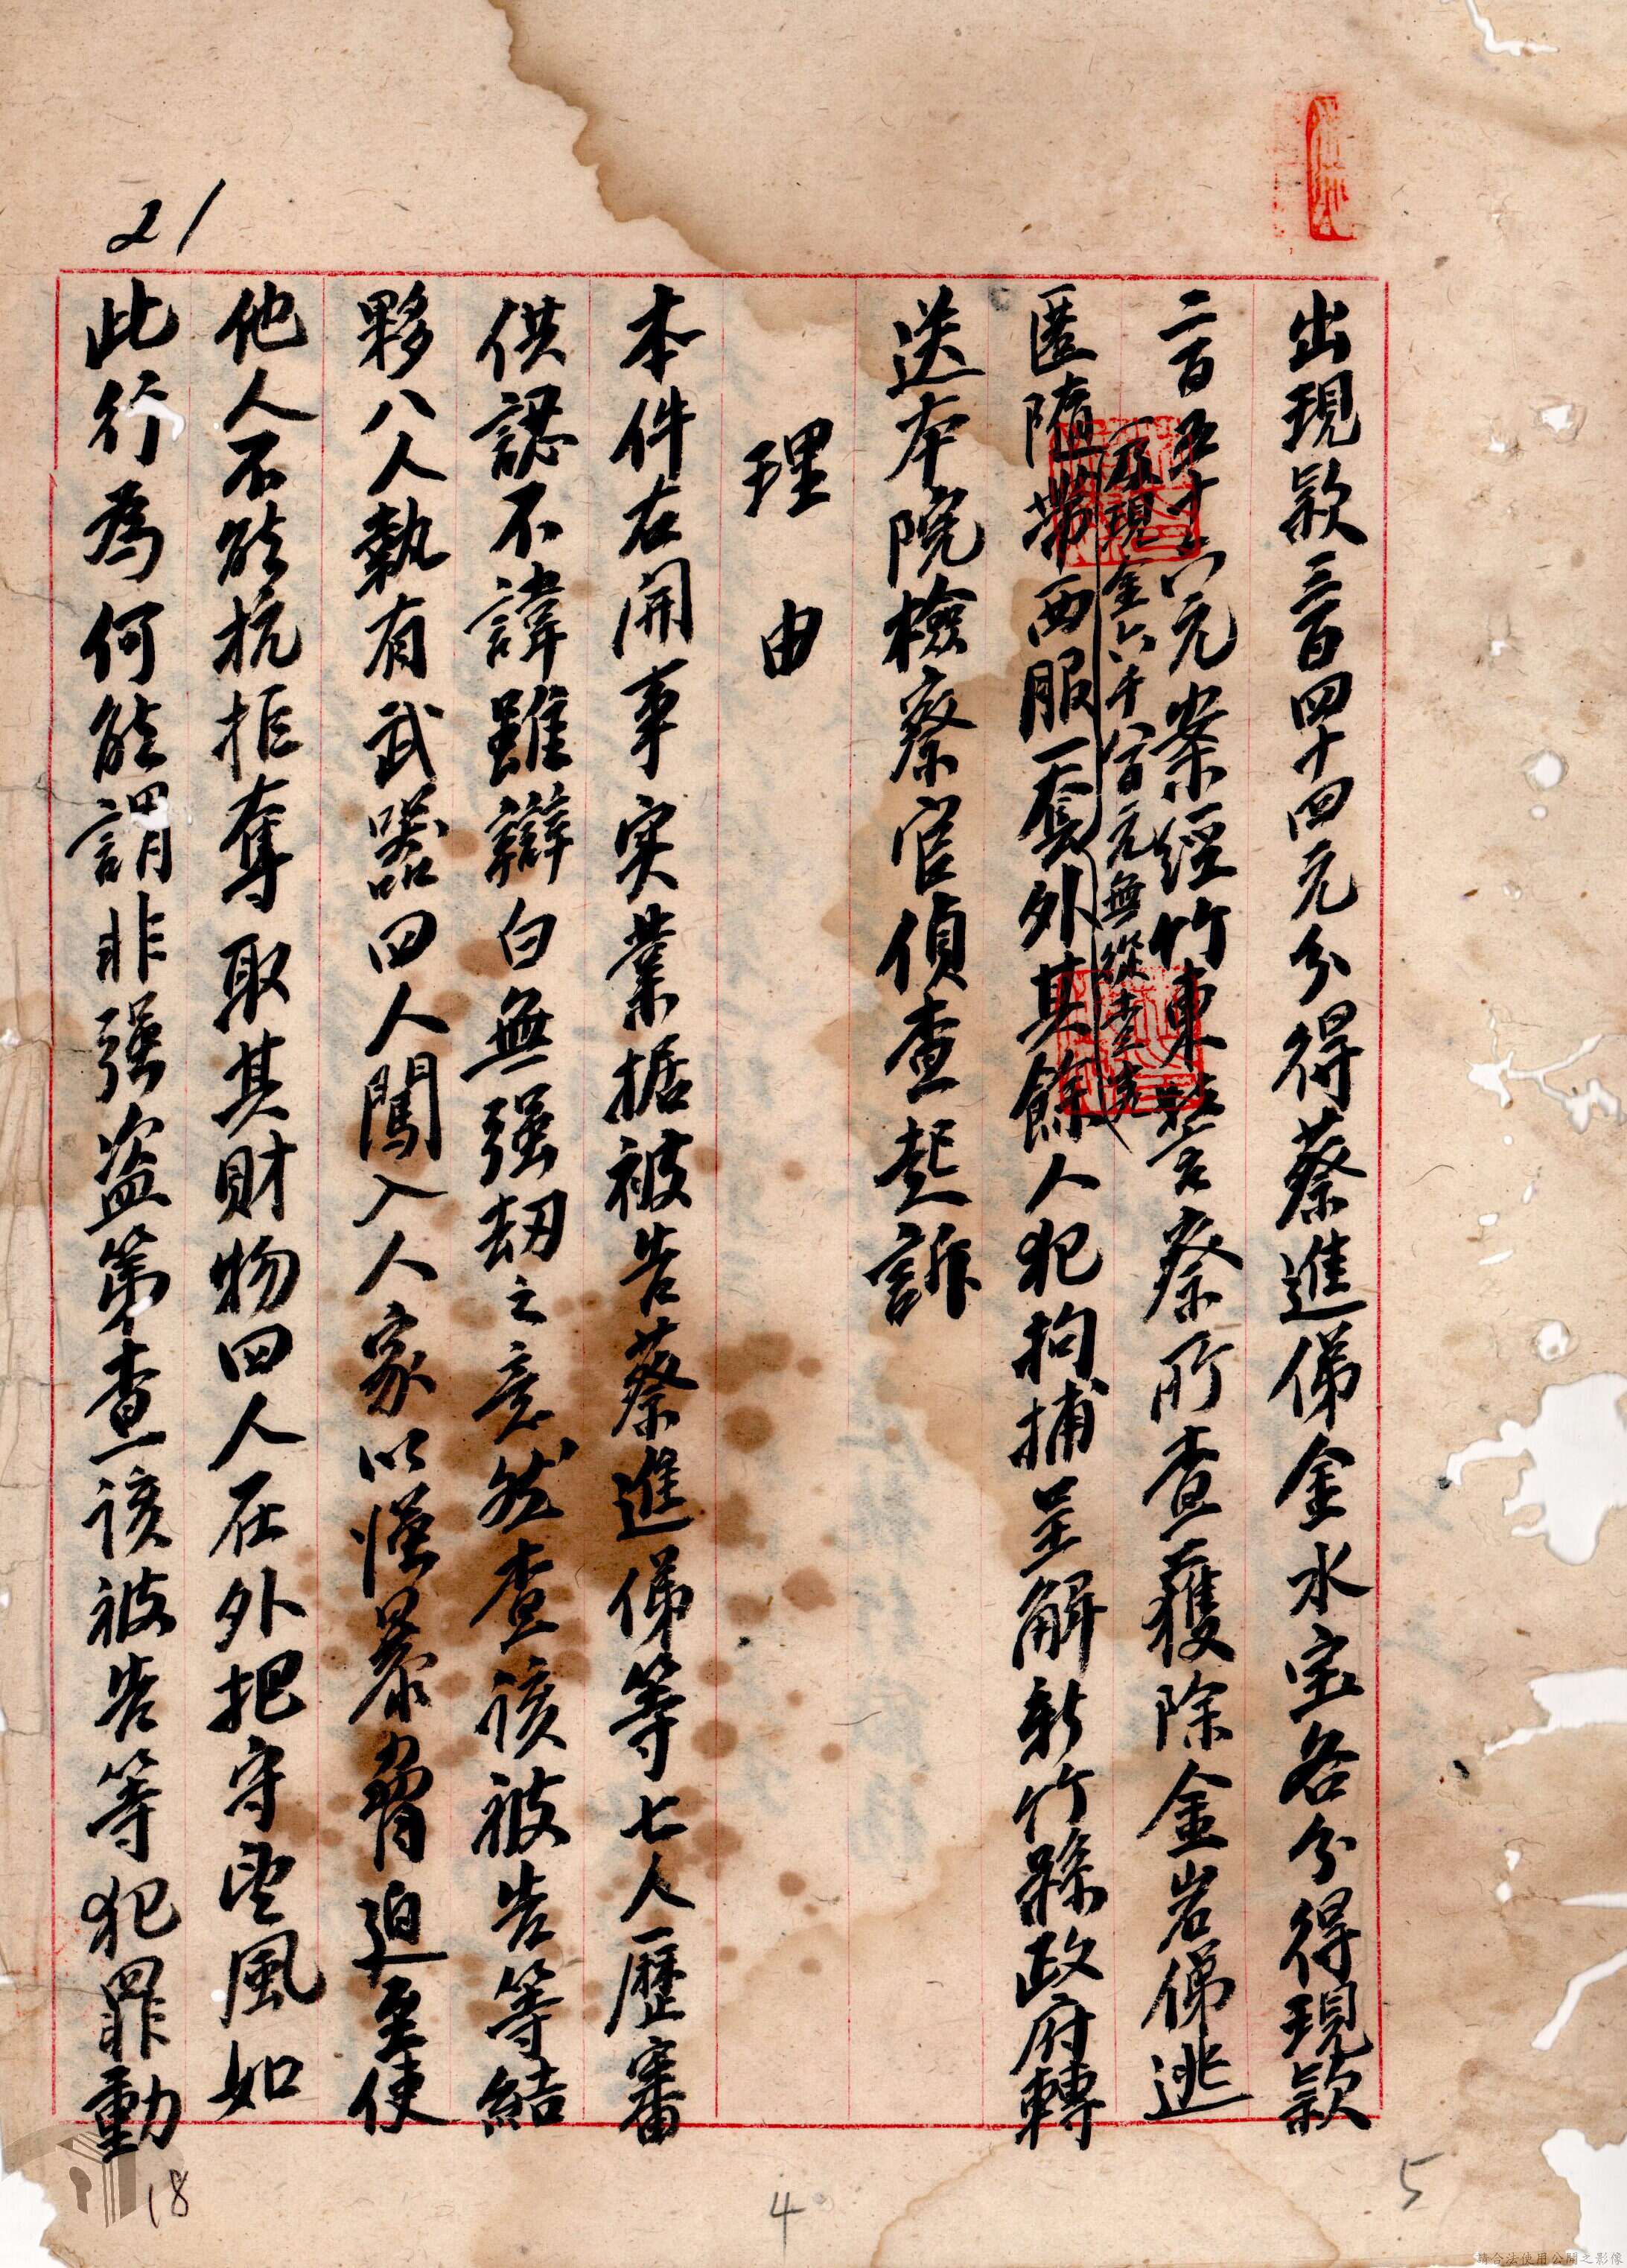 21
出現款三百四十四元分得蔡進俤金水宝各分得現款
二百五十六元案經竹東警察所查獲除金岩俤逃
原現金六千八百元無從查究
匿隨帶西服一套外其餘人犯拘捕呈解新竹縣政府轉
送本院檢察官偵查起訴
理由
本件右開事实業据被告蔡進俤等七人歷審
供認不諱雖辯白無强劫之意然查該被告等結
夥八人執有武器四人闖入人家以强暴脅迫至使
他人不能抗拒奪取其財物四人在外把守望風如
此行為何能謂非强盗第查該被告等犯罪動
18
4
5
請合法使用公開之影像